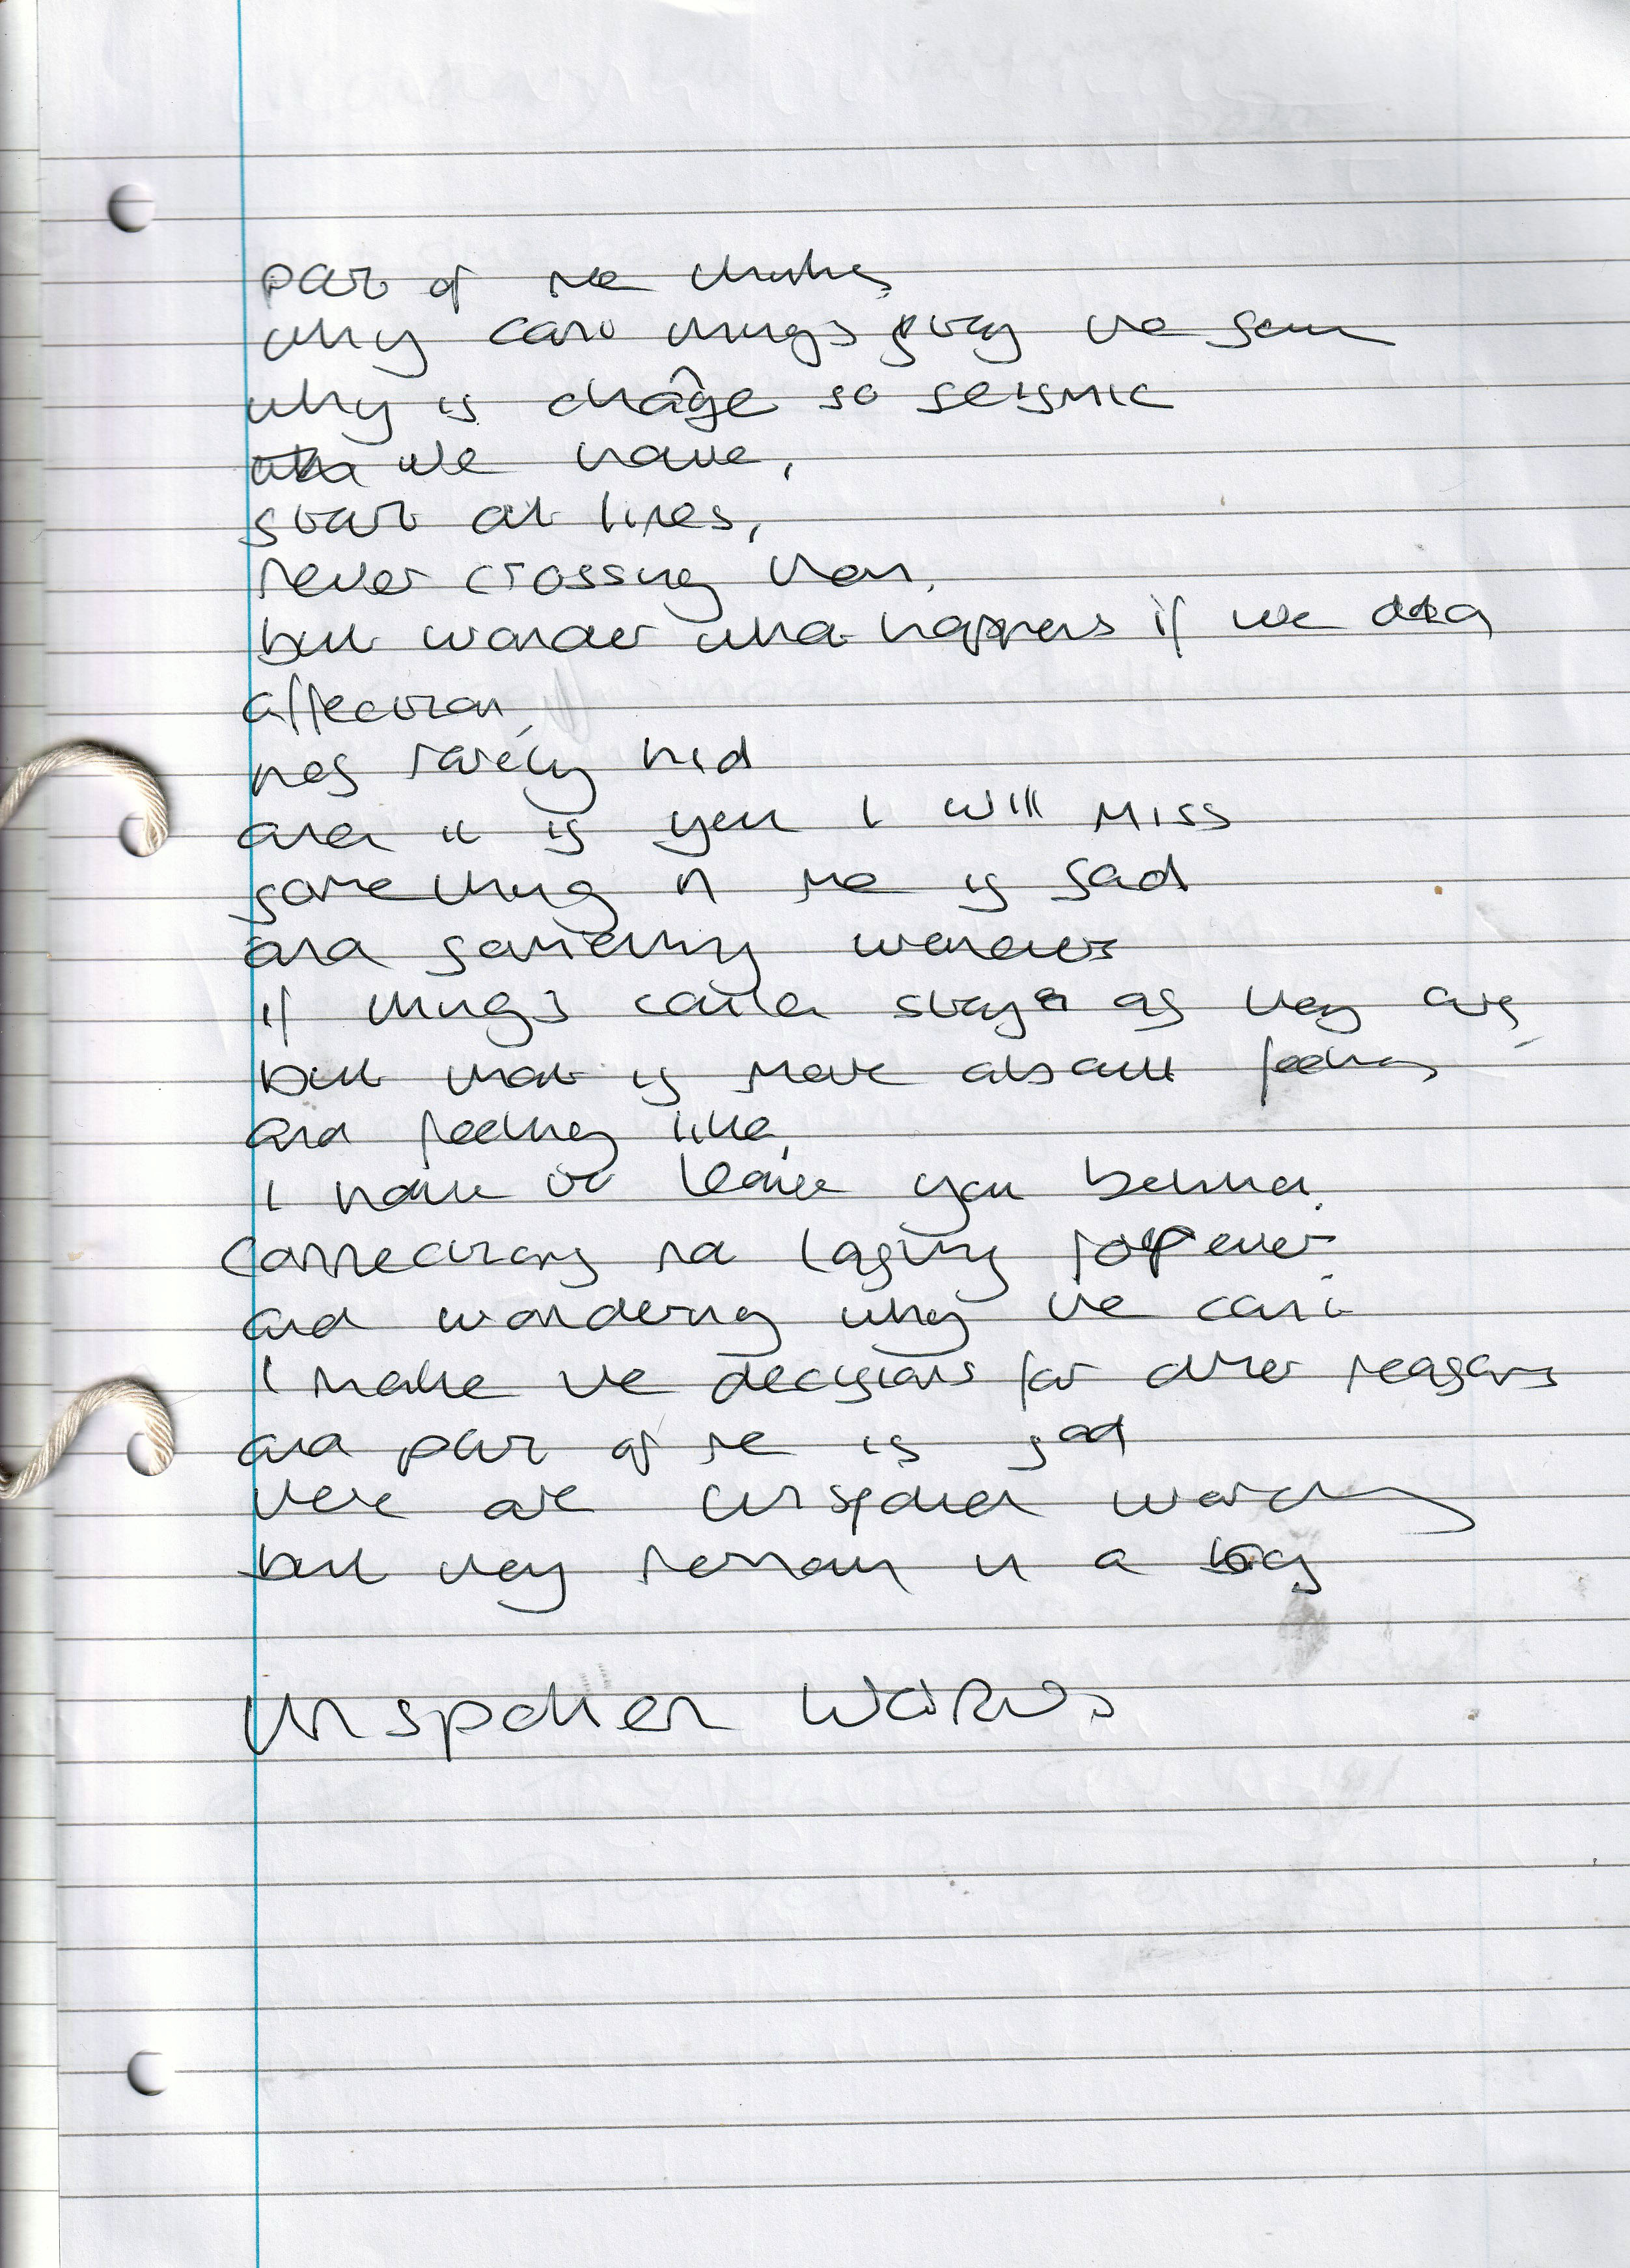 part of me thinks
why cant things stay the same
why is change so seismic
we have,
start at lines,
never crossing them,
but wonder what happens if we did
affection,
rarely hid
and it is you I will miss
something in me is sad
and something wonders
if things could stay as they are,
but that is more about feelings
and feeling like,
I have to leave you behind.
connections not lasting forever.
and wondering why the can't
I make the decisions for other reasons
and part of me is sad
there are unspoken words
but they remain in a
unspoken words